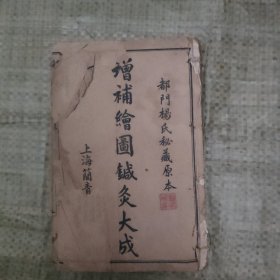 都門楊氏秘藏原本
增補繪圖鍼灸大成
上海簡青